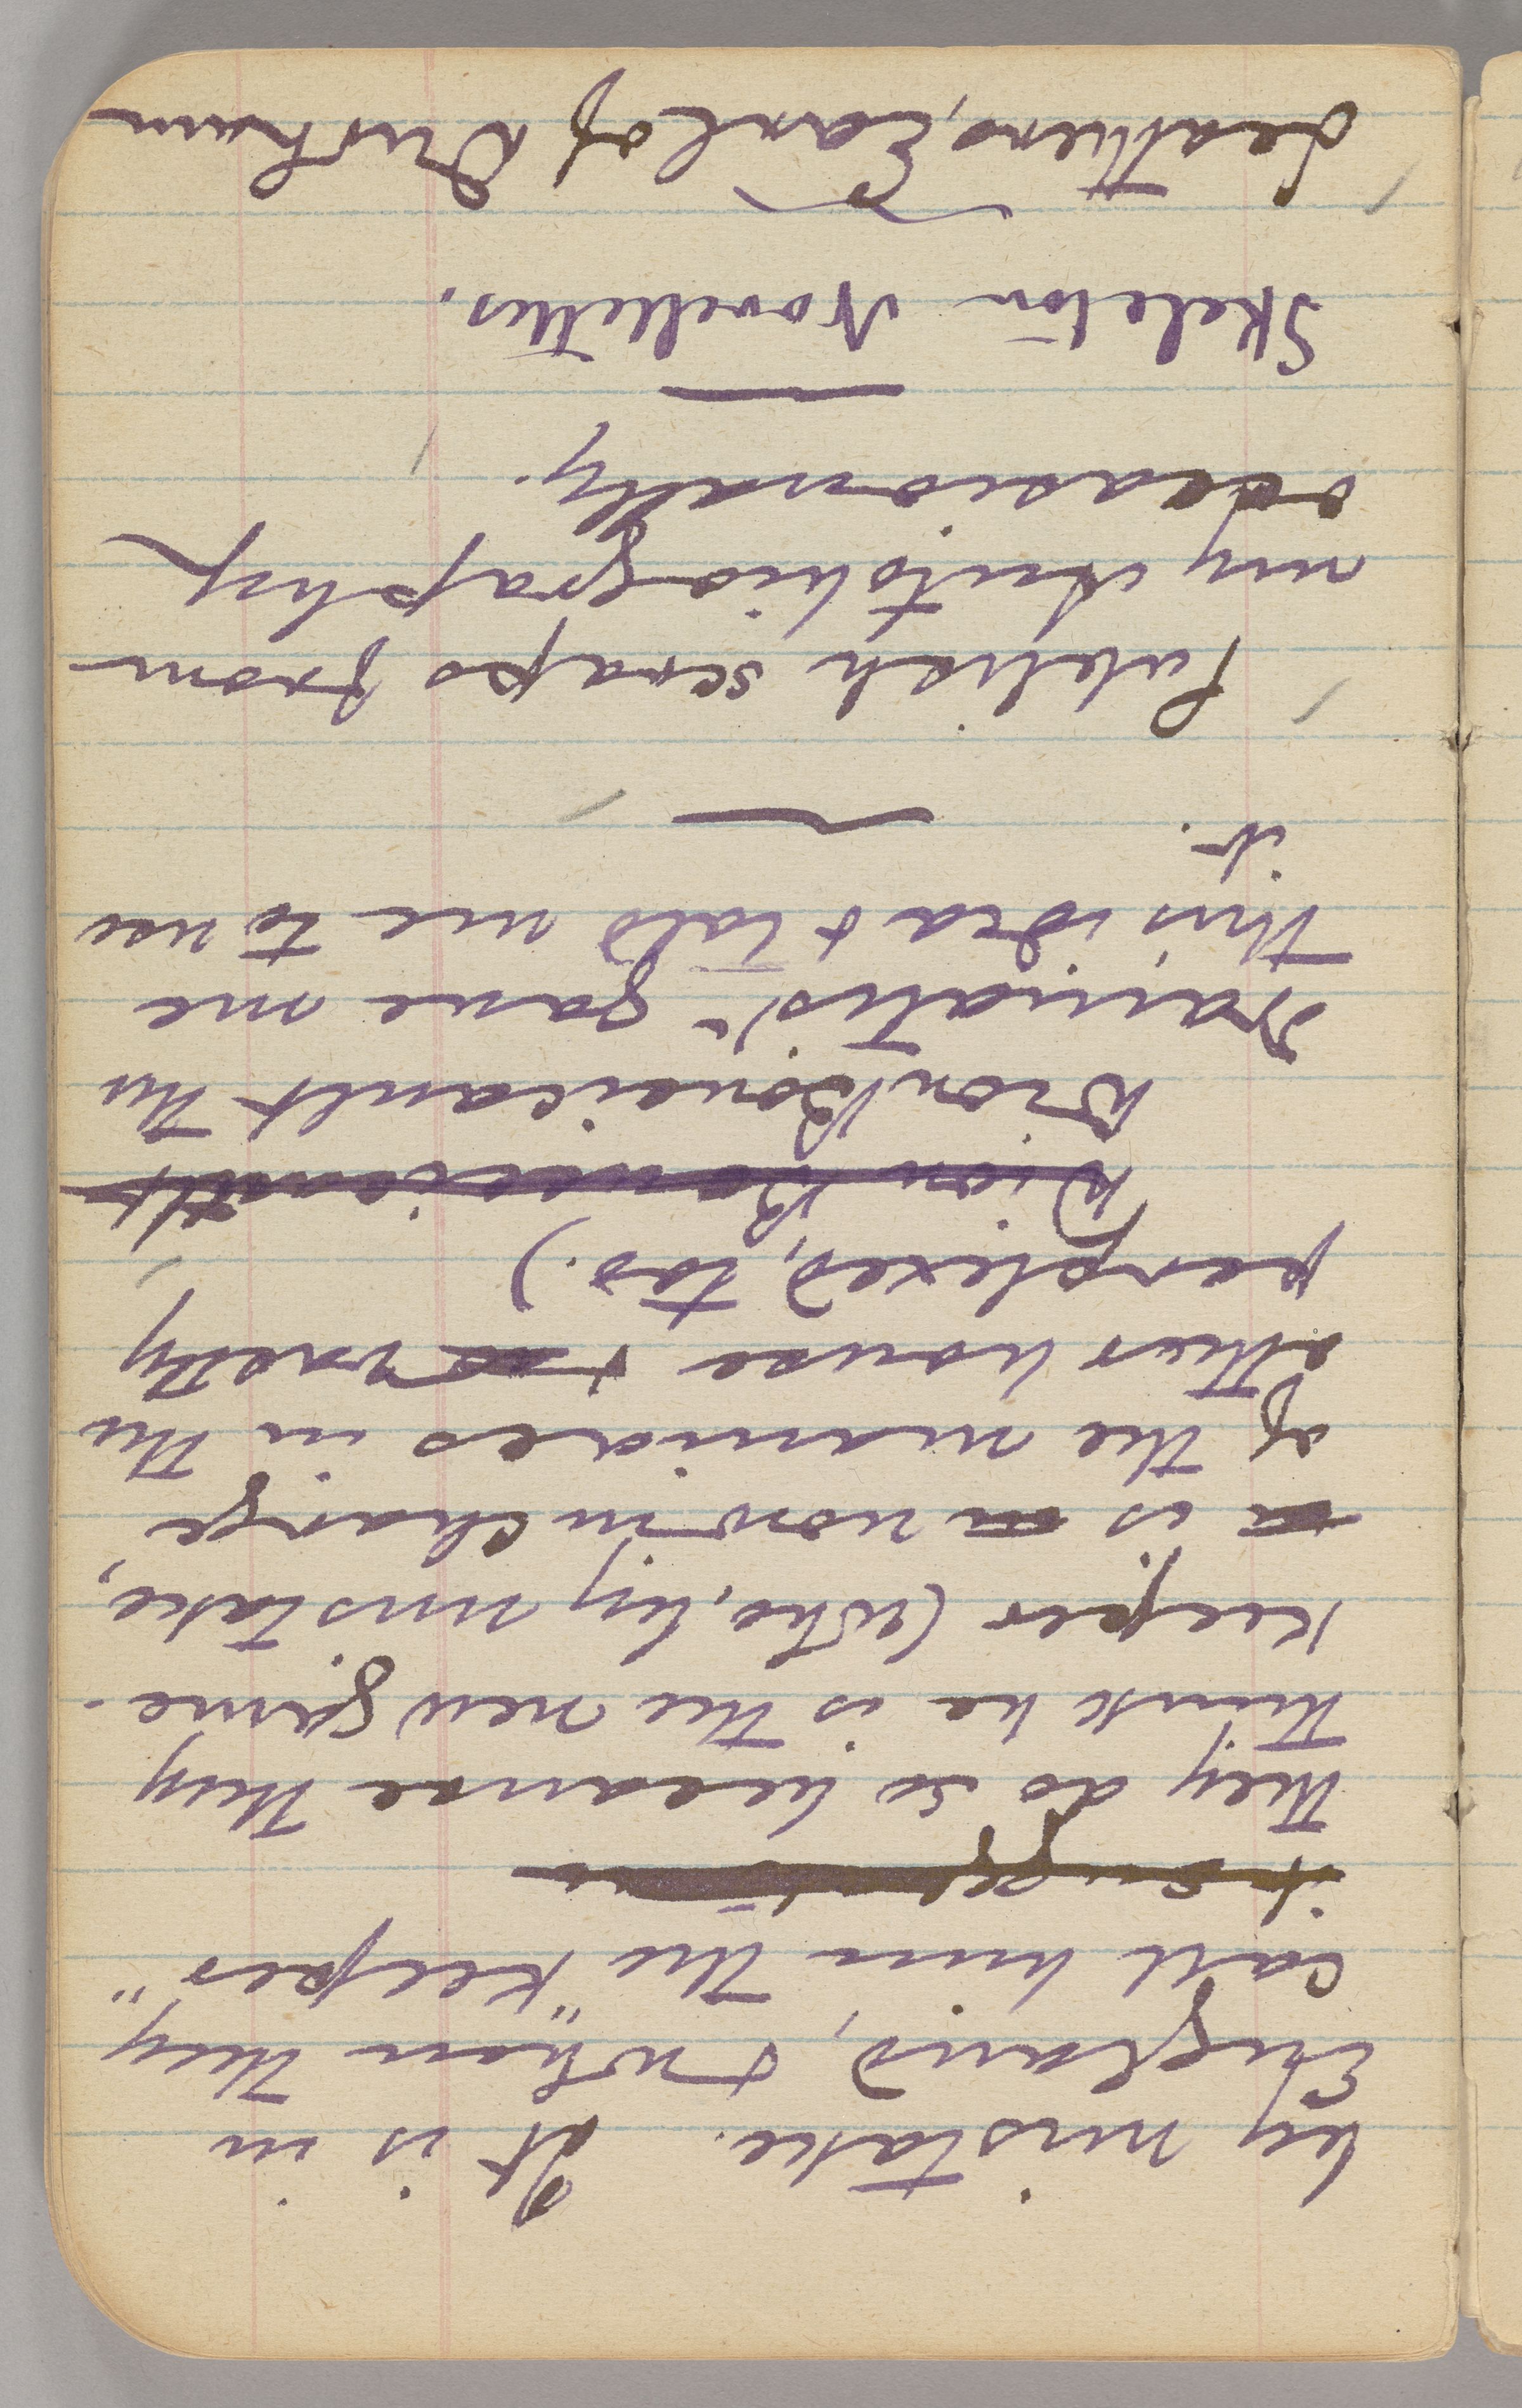 by mistake. It is in
England, & whom they
call him the "keeper"
it suggestive
they do so because they
think he is the new game-
keeper (who, by mistake,
is now in charge
of the maniacs in the
other house & pretty
perplexed, too.)
Dion Boucicault
Dion Boucicault the
dramatist gave me
this idea & told me to use
it.
Publish scraps from
my Autobiography
occasionally.
Skeleton Novelettes.
Leathers, Earl of Durham